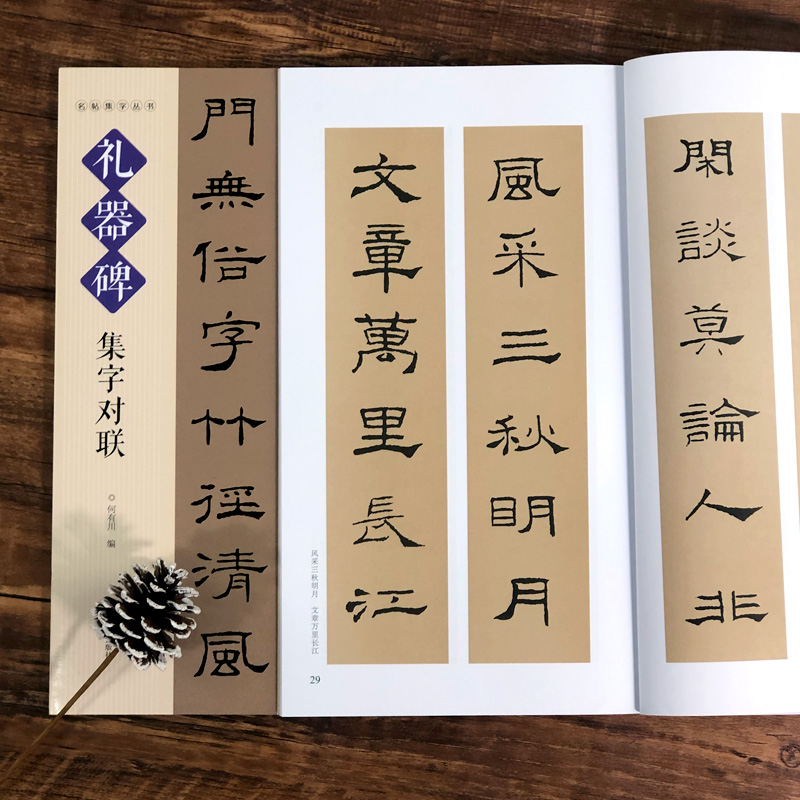 名帖集字丛书
礼器碑
集字对联
◎何有川 编
版社
門無俗字竹徑清風
風采三秋明月
文章萬里長江
风采三秋明月 文章万里长江
29
閑談莫論人非